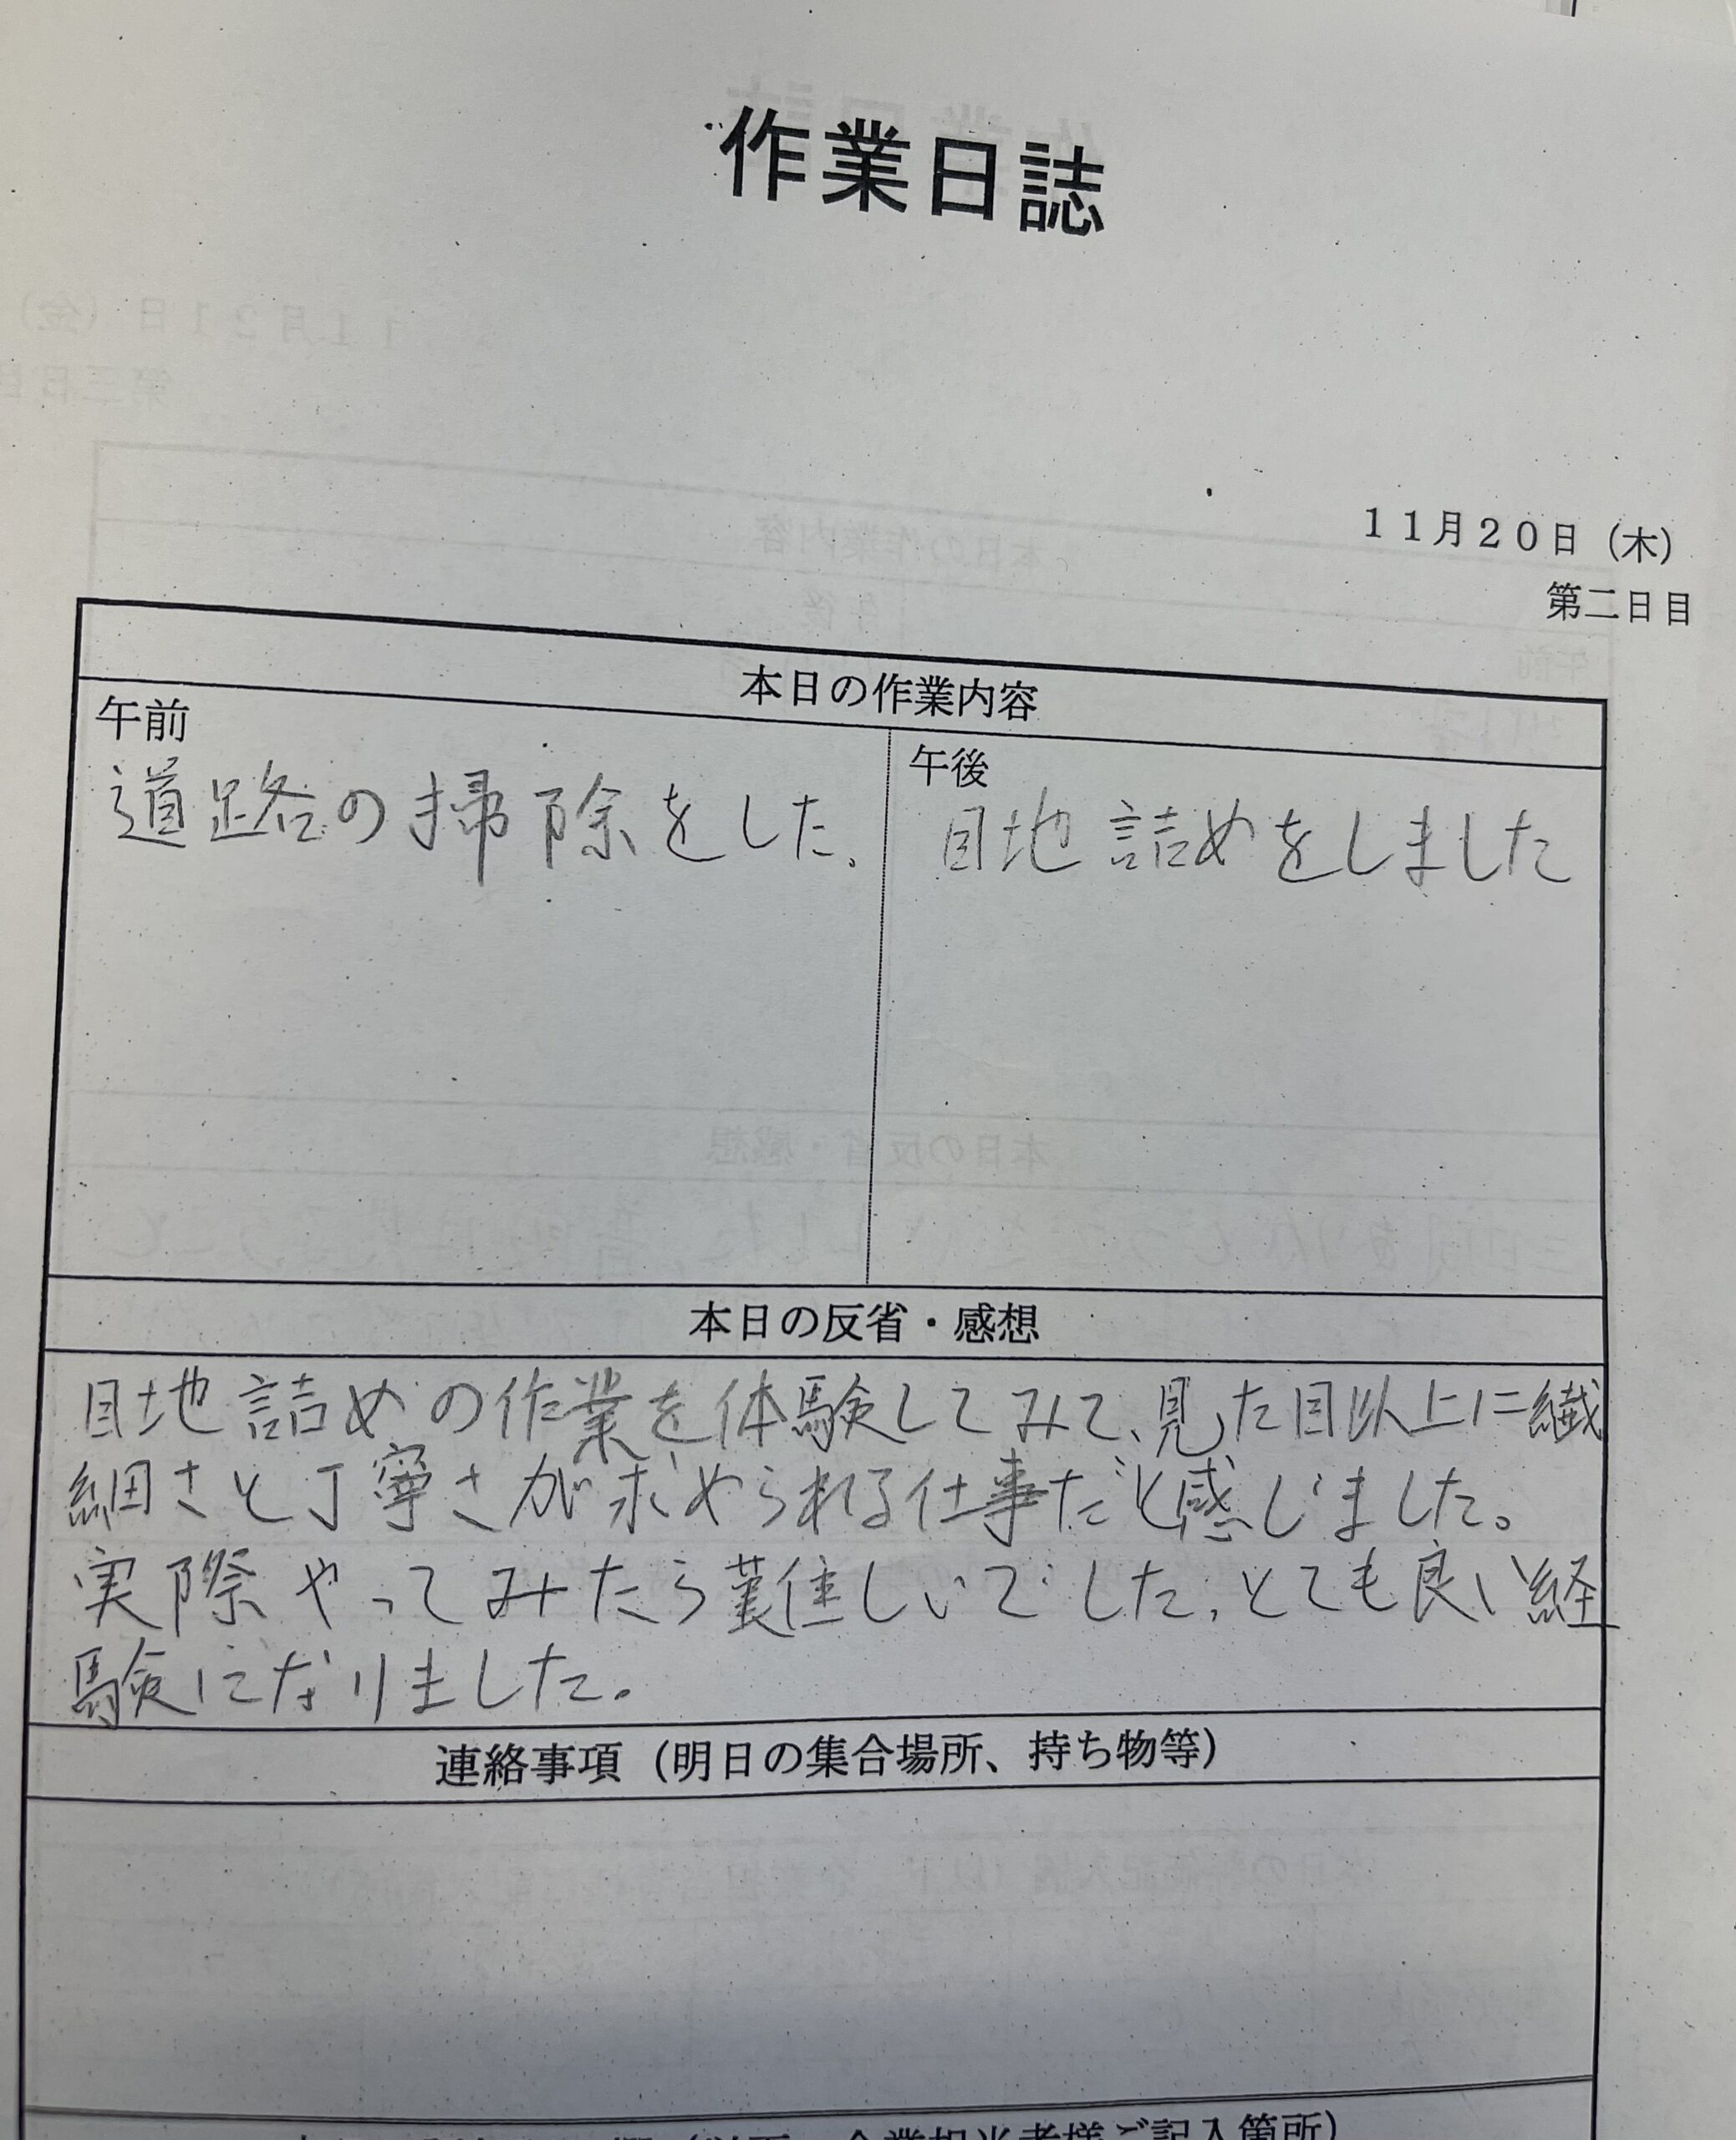 作業日誌
11月20日（木）
第二日目
本日の作業内容
午前
道路の掃除をした。
午後
目地詰めをしました
本日の反省・感想
目地詰めの作業を体験してみて、見た目以上に繊
細さと丁寧さが求められる仕事だと感じました。
実際やってみたら難しいでした。とても良い経
験になりました。
連絡事項（明日の集合場所、持ち物等）
（以下、企業担当者様ご記入箇所）